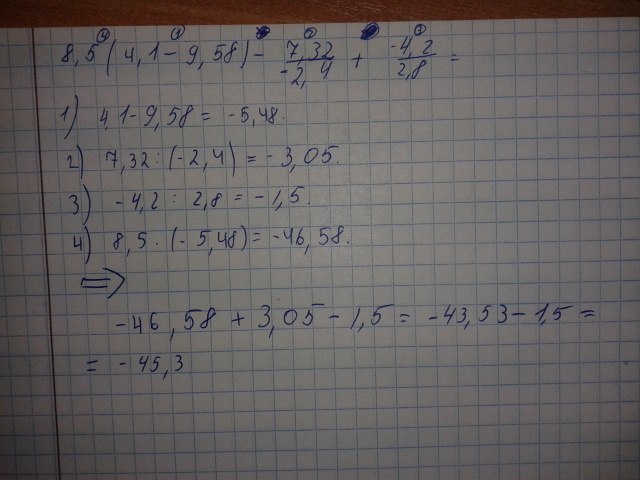 8,5(4,1-9,58)- 7,32/-2,4 + -4,2/2,8 =
1) 4,1-9,58 = -5,48.
2) 7,32:(-2,4) = -3,05.
3) -4,2 : 2,8 = -1,5.
4) 8,5 · (-5,48) = -46,58.
⇒
-46,58 + 3,05 - 1,5 = -43,53 - 1,5 =
= -45,3